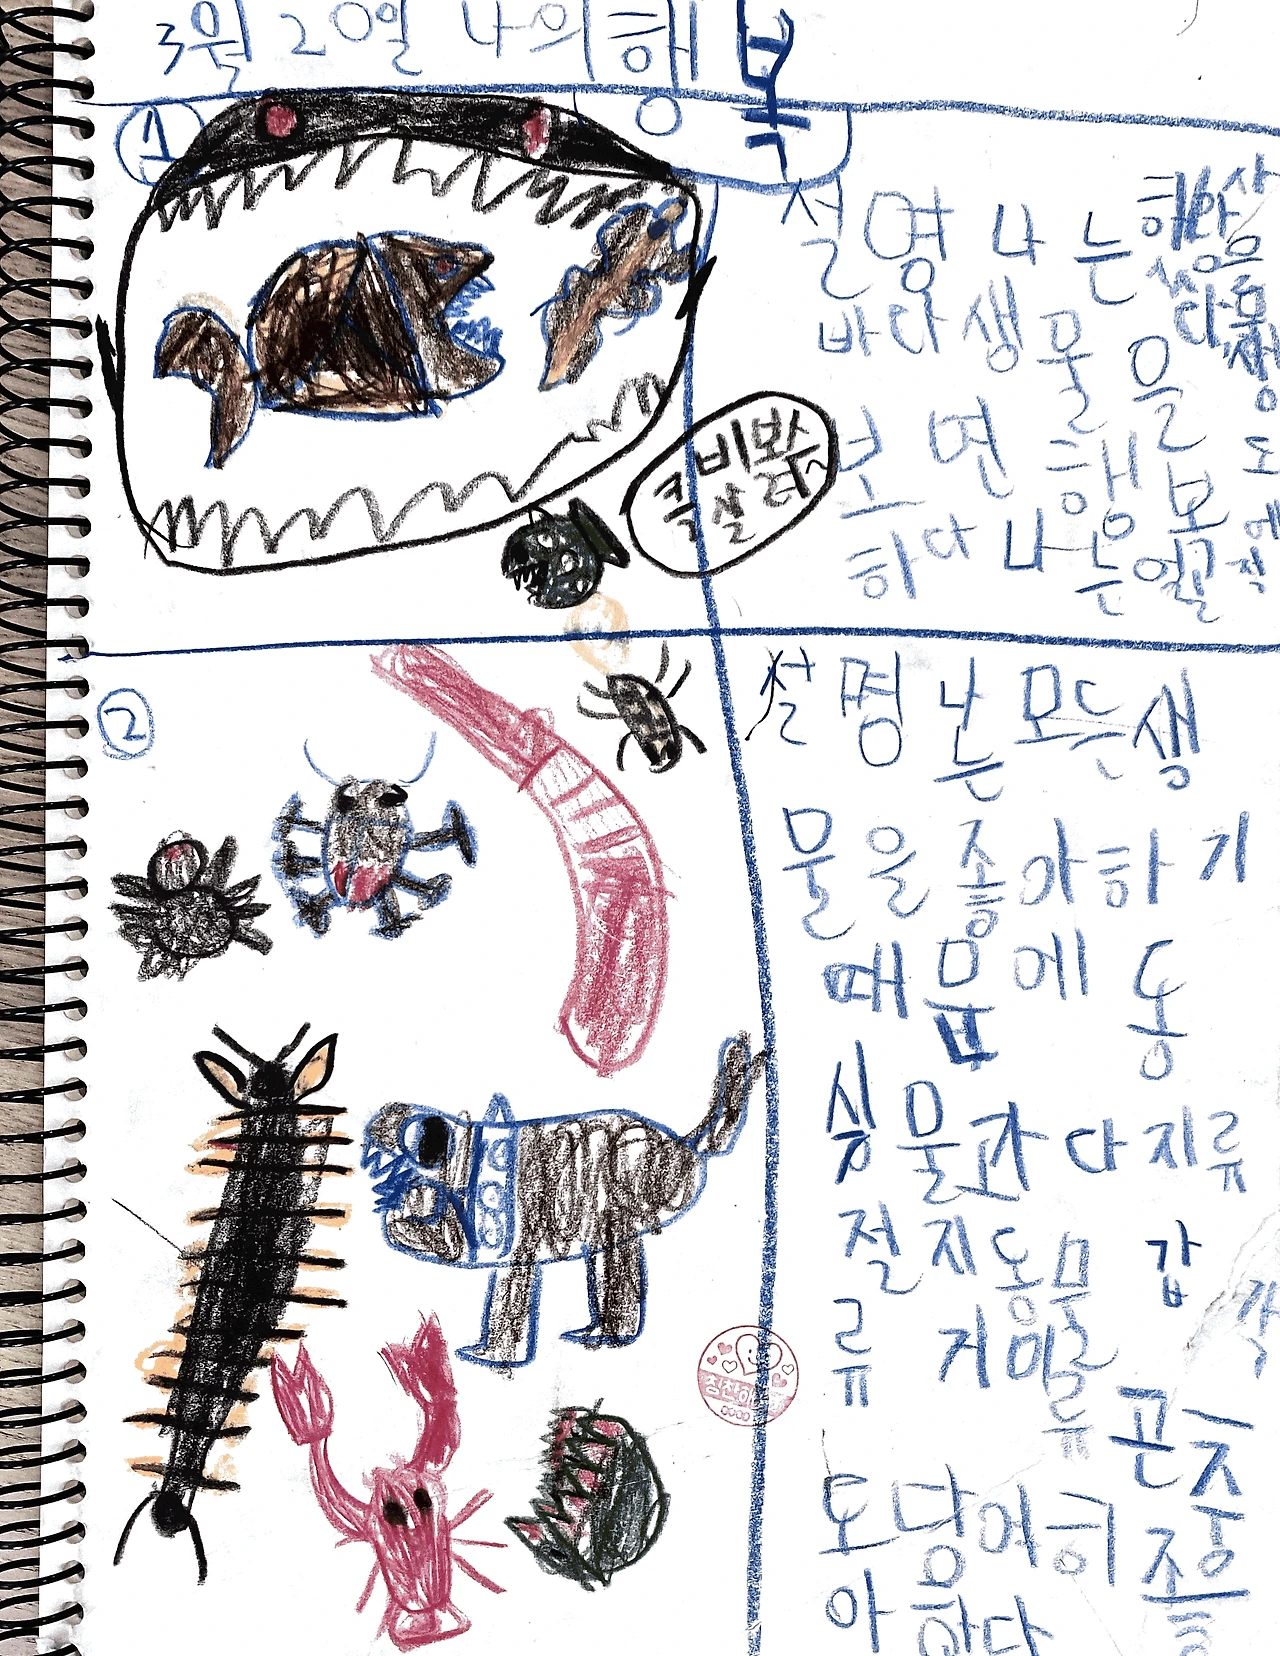 3월 20일 나의 행복
1
설명 나는
바다 생물을
보면 행복
하다 나는 얼굴
큭 비봤
살려~
2
설명 나는 모든 생
물을 좋아하기
때문에 동
식물과 다지류
절지동물 갑각
류 거미류 곤충
도 당여히 좋
아한다